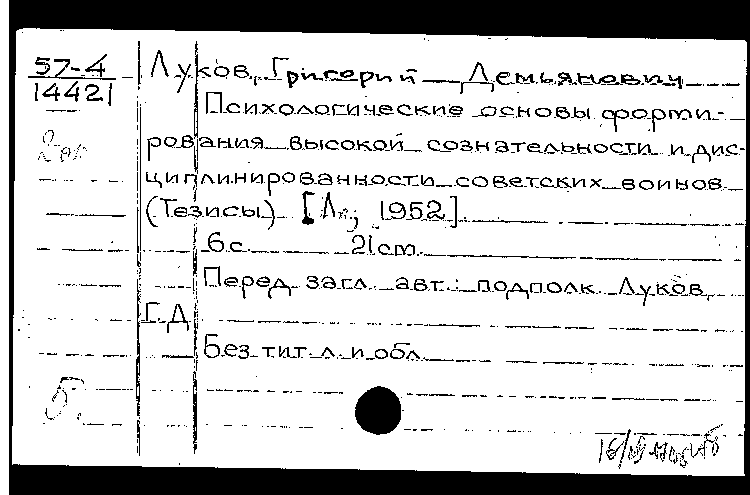 57-4
14421
2 оп
Луков, Григорий Демьянович
Психологические основы форми-
рования высокой сознательности и дис-
циплинированности советских воинов
(Тезисы) [Л., 1952].
6 с. 21 cm.
Перед загл. авт.: подполк. Луков,
Г. Д
Без тит. л. и обл.
5.